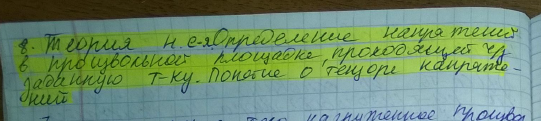 8. Теория н.с-я Определение напряжений
в произвольной площадке, проходящей чз
заданную т-ку. Понятие о тензоре напряже-
ний
нагруженное произво